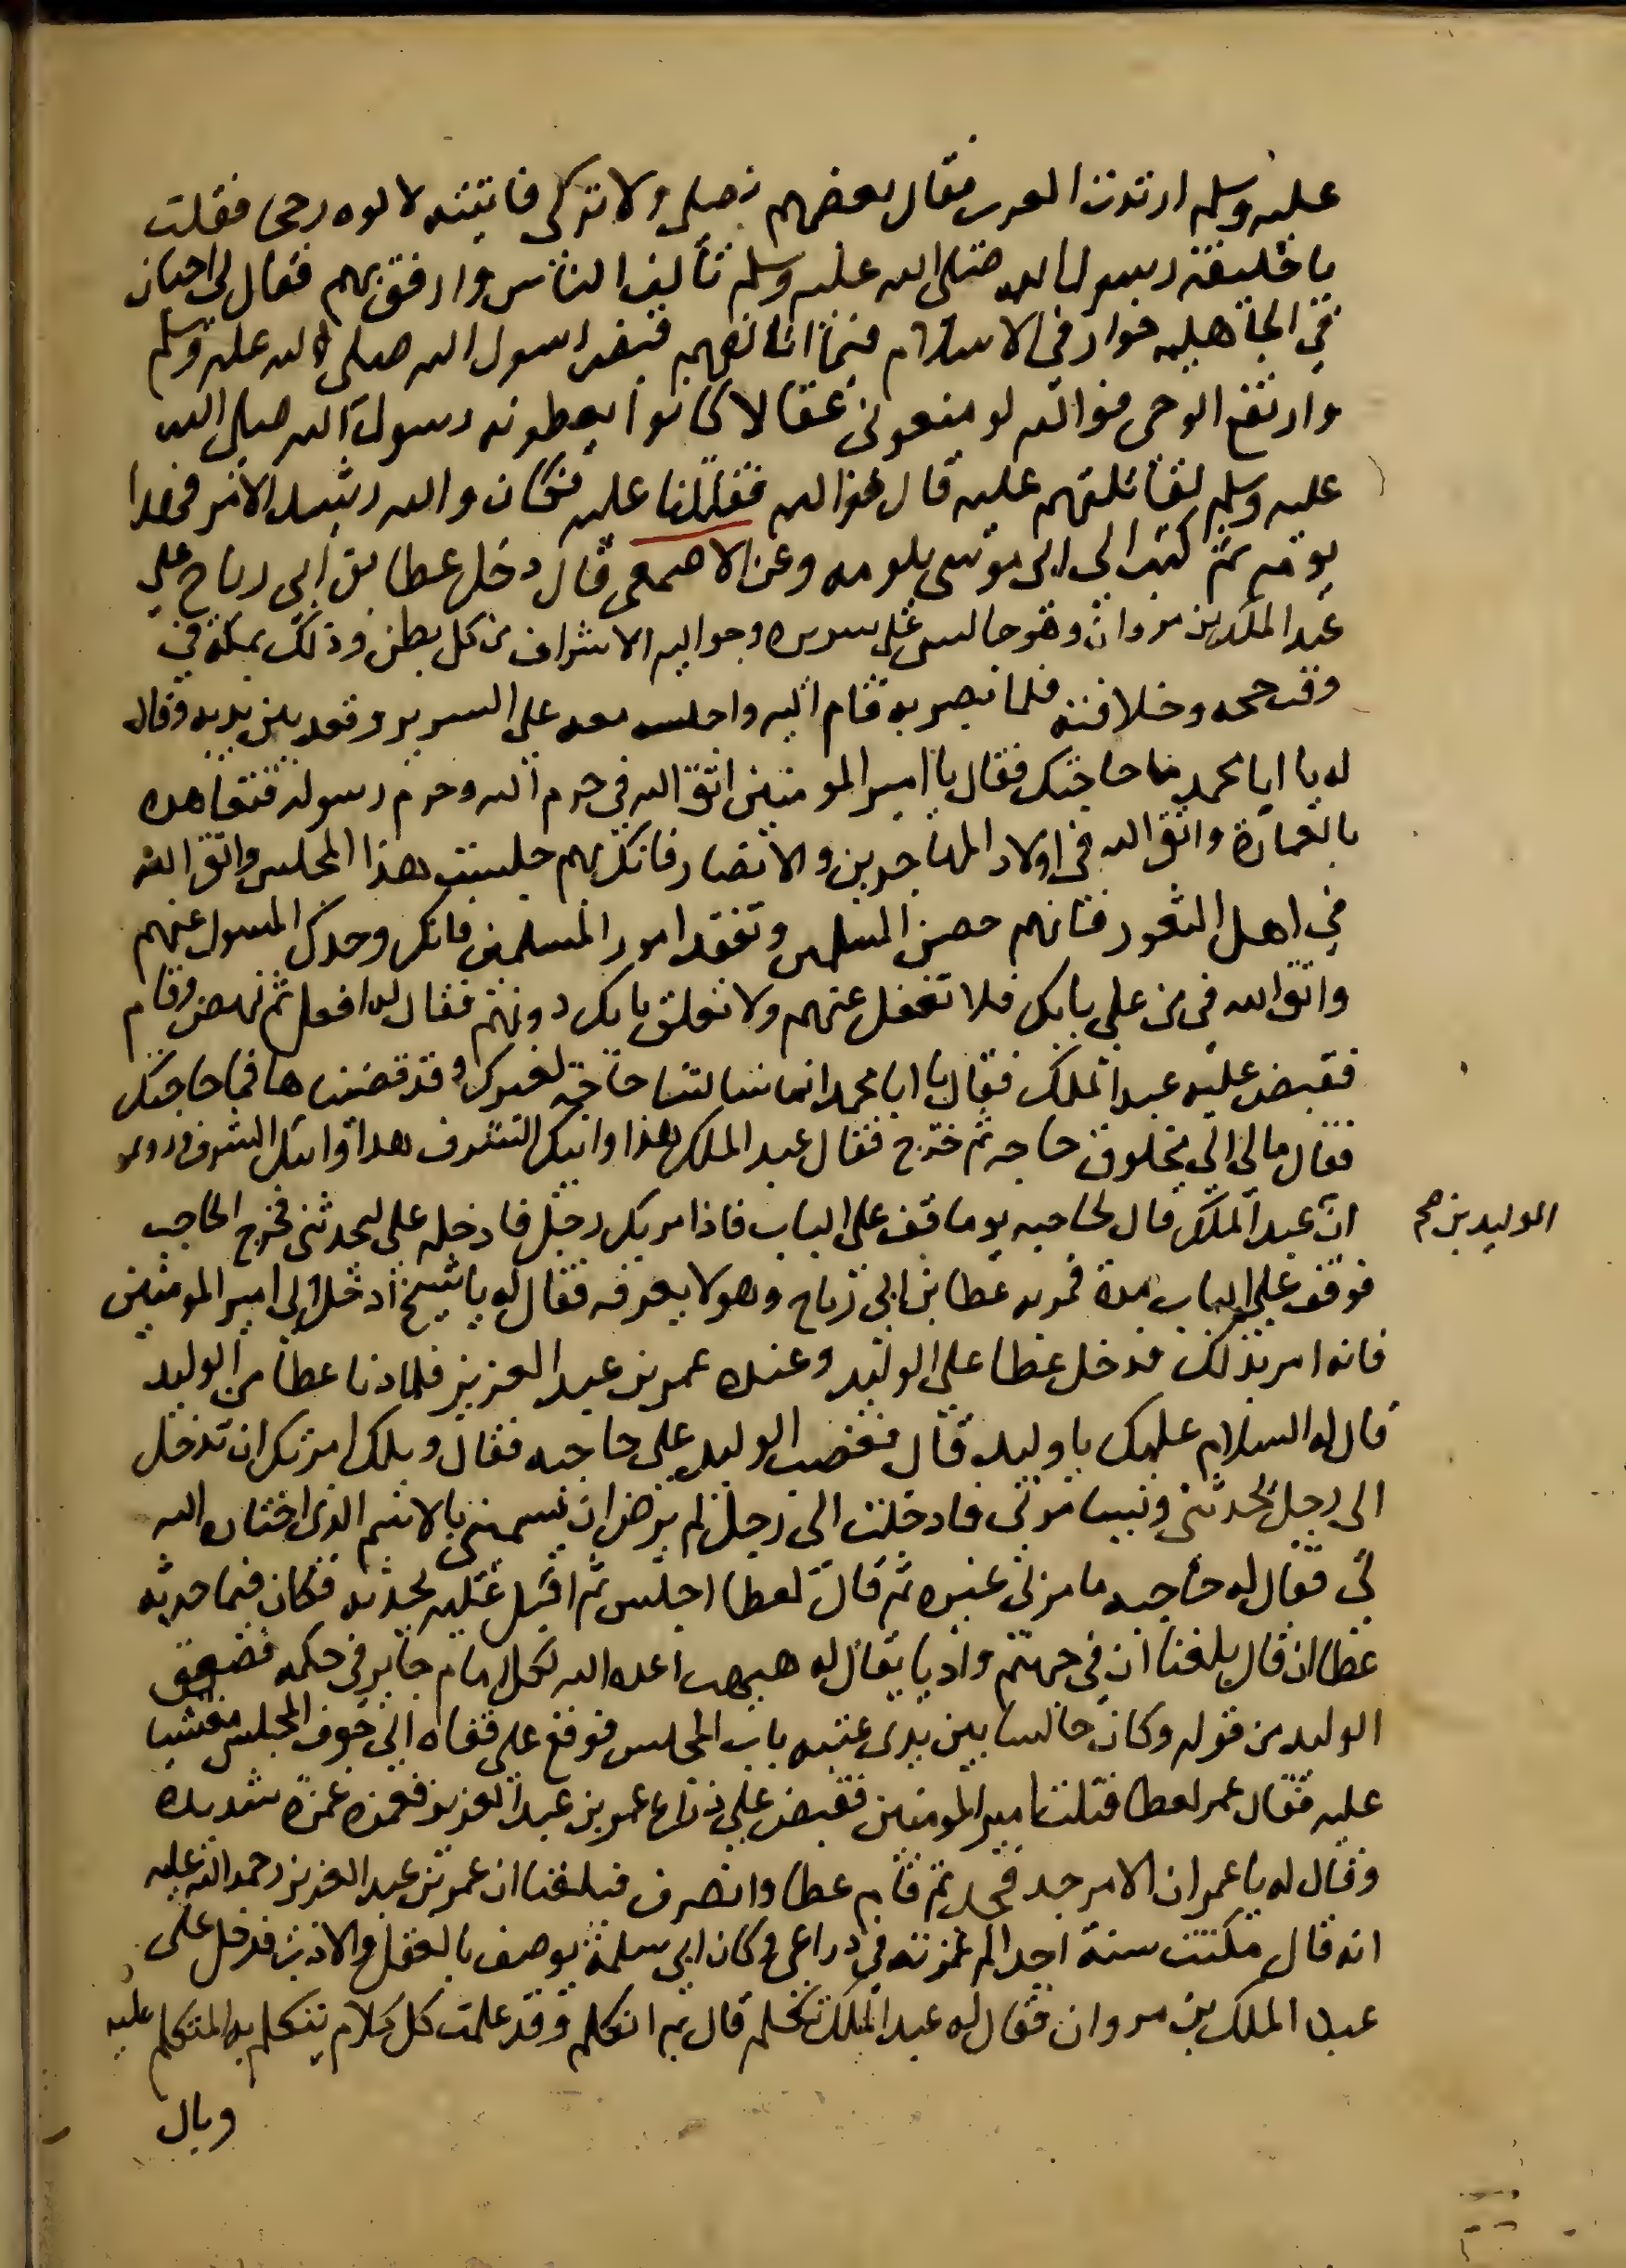 عليه وسلم ارتدت العرب فقال بعضهم نصلي ولا نزكي فاتيته لا الوه نصحا فقلت
يا خليفة رسول الله صلى الله عليه وسلم تألف الناس وارفق بهم فقال لي اجبار
في الجاهليه خوار في الاسلام فبماذا اتالفهم قبض رسول الله صلى الله عليه وسلم
وارتفع الوحي فوالله لو منعوني عقالا كانوا يعطونه رسول الله صلى الله
عليه وسلم لقاتلتهم عليه قال فوالله فقاتلنا عليه فكان والله رشيد الامر فهذا
يومه ثم كتب الى ابي موسى يلومه وعن الاصمعي قال دخل عطا بن ابي رباح على
عبد الملك بن مروان وهو جالس على سريره وحواليه الاشراف من كل بطن وذلك بمكة في
وقت حجه وخلافته فلما بصر به قام اليه واجلسه معه على السرير وقعد بين يديه وقال
له يا ابا محمد ما حاجتك فقال يا امير المومنين اتق الله في حرم الله وحرم رسوله فتعاهده
بالعمارة واتق الله في اولاد المهاجرين والانصار فانك بهم جلست هذا المجلس واتق الله
في اهل الثغور فانهم حصن المسلمين وتفقد امور المسلمين فانك وحدك المسول عنهم
واتق الله في من على بابك فلا تغفل عنهم ولا تغلق بابك دونهم فقال له افعل ثم نهض وقام
فقبض عليه عبد الملك فقال يا ابا محمد انما سالتنا حاجة لغيرك وقد قضيناها فما حاجتك
فقال مالي الى مخلوق حاجه ثم خرج فقال عبد الملك هذا وابيك الشرف هذا وابيك الشرف وروى
ان عبد الملك قال لحاجبه يوما قف على الباب فاذا مر بك رجل فادخله علي ليحدثني فخرج الحاجب
الوليد بن صح
فوقف على الباب مدة فمر به عطا بن ابي رباح وهو لا يعرفه فقال له يا شيخ ادخل الى امير المومنين
فانه امر بذلك فدخل عطا على الوليد وعنده عمر بن عبد العزيز فلما دنا عطا من الوليد
قال له السلام عليك يا وليد قال فغضب الوليد على حاجبه فقال ويلك امرتك ان تدخل
الي رجلا يحدثني ويسامرني فادخلت الي رجلا لم يرض ان يسميني بالاسم الذي اختاره الله
لي فقال له حاجبه ما مر بي غيره ثم قال لعطا اجلس ثم اقبل عليه يحدثه فكان فيما حدثه
عطا ان قال بلغنا ان في جهنم واديا يقال له هبهب اعده الله لكل امام جاير في حكمه فصعق
الوليد من قوله وكان جالسا بين يدي عتبه باب المجلس فوقع على قفاه الى جوف المجلس مغشيا
عليه فقال عمر لعطا قتلت امير المومنين فقبض على ذراع عمر بن عبد العزيز فغمزه غمزة شديدة
وقال له يا عمر ان الامر جد فجد ثم قام عطا وانصرف فبلغنا ان عمر بن عبد العزيز رحمه الله عليه
انه قال مكثت سنة اجد الم غمزته في ذراعي وكان ابي سلمة يوصف بالعقل والادب فدخل على
عبد الملك بن مروان فقال له عبد الملك تكلم قال بم اتكلم وقد علمت كل كلام يتكلم به المتكلم عليه
وبال